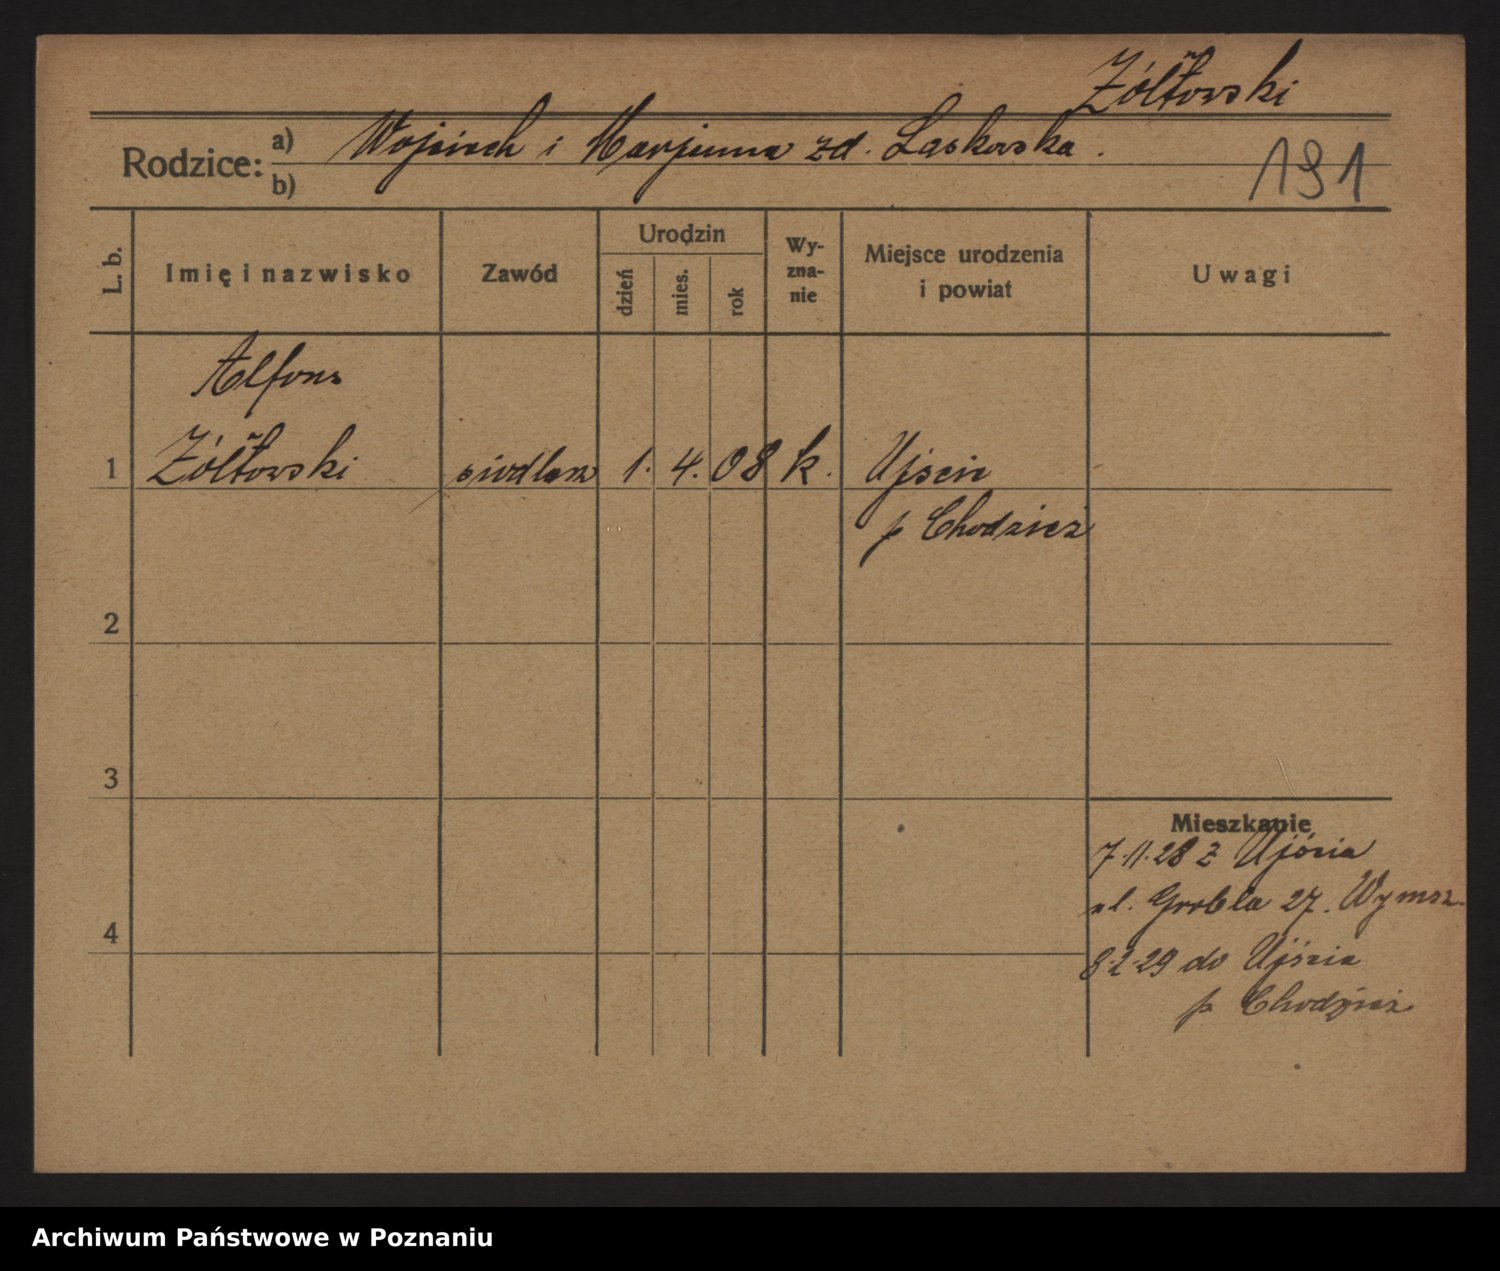 Żółtowski
Rodzice: a) Wojciech i Marjanna zd. Laskowska.
b)
191
L. b.
Imię i nazwisko
Zawód
Urodzin
dzień
mies.
rok
Wy-
zna-
nie
Miejsce urodzenia
i powiat
Uwagi
Alfons
1 Żółtowski siodlarz 1. 4. 08 k. Ujście
p Chodzież
2
3
4
Mieszkanie
7.11.28 z Ujścia
ul. Grobla 27. Wymsz.
8.2.29 do Ujścia
p. Chodzież
Archiwum Państwowe w Poznaniu